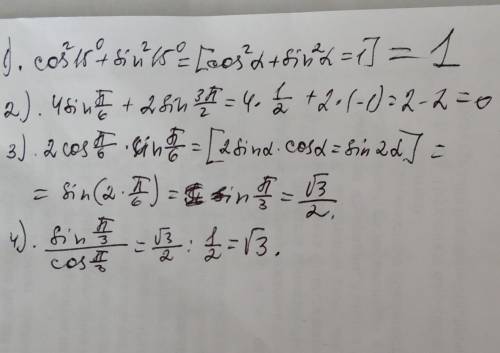 1). cos²15⁰ + sin²15⁰ = [cos²α + sin²α = 1] = 1
2). 4sin π/6 + 2sin 3π/2 = 4 · 1/2 + 2 · (-1) = 2 - 2 = 0
3). 2cos π/6 · sin π/6 = [2sinα · cosα = sin2α] =
= sin(2 · π/6) = sin π/3 = √3/2.
4). sin π/3 / cos π/3 = √3/2 : 1/2 = √3.